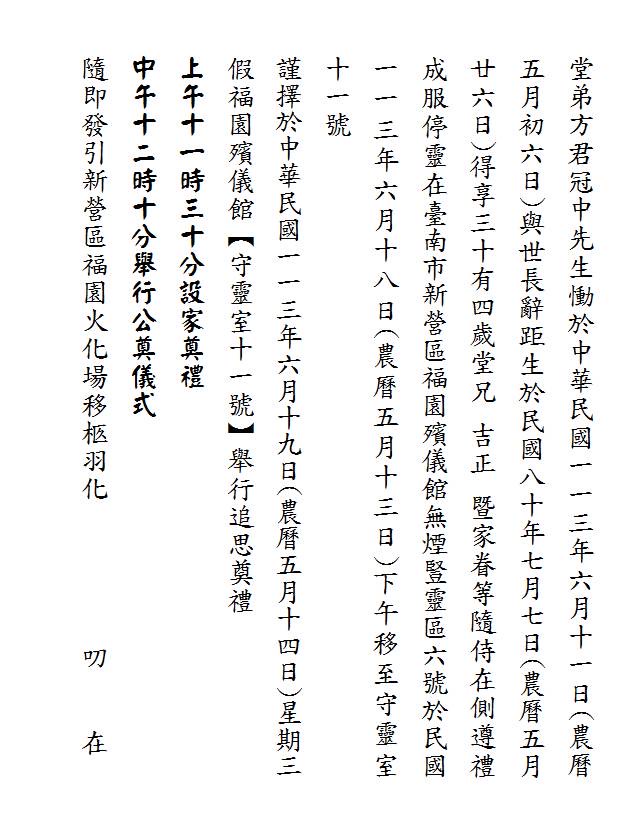 堂弟方君冠中先生慟於中華民國一一三年六月十一日(農曆
五月初六日)與世長辭距生於民國八十年七月七日(農曆五月
廿六日)得享三十有四歲堂兄 吉正 暨家眷等隨侍在側遵禮
成服停靈在臺南市新營區福園殯儀館無煙豎靈區六號於民國
一一三年六月十八日(農曆五月十三日)下午移至守靈室
十一號
謹擇於中華民國一一三年六月十九日(農曆五月十四日)星期三
假福園殯儀館【守靈室十一號】舉行追思奠禮
上午十一時三十分設家奠禮
中午十二時十分舉行公奠儀式
隨即發引新營區福園火化場移柩羽化 叨 在